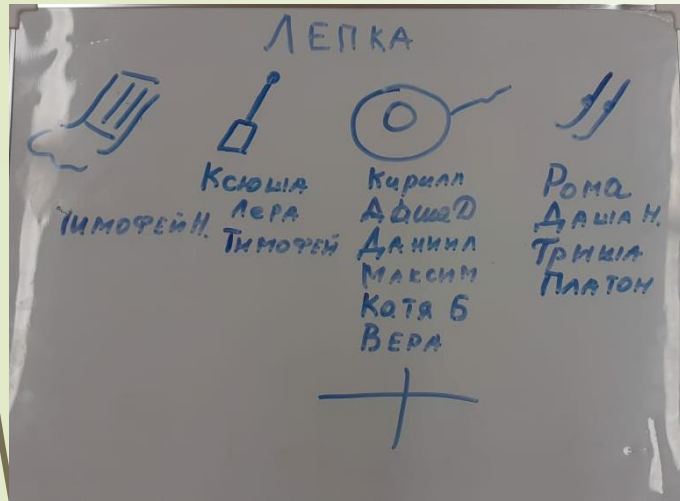 ЛЕПКА
Тимофей Н.
Ксюша
Лера
Тимофей
Кирилл
Даша D
Даниил
Максим
Катя Б
Вера
Рома
Даша Н.
Триша
Платон